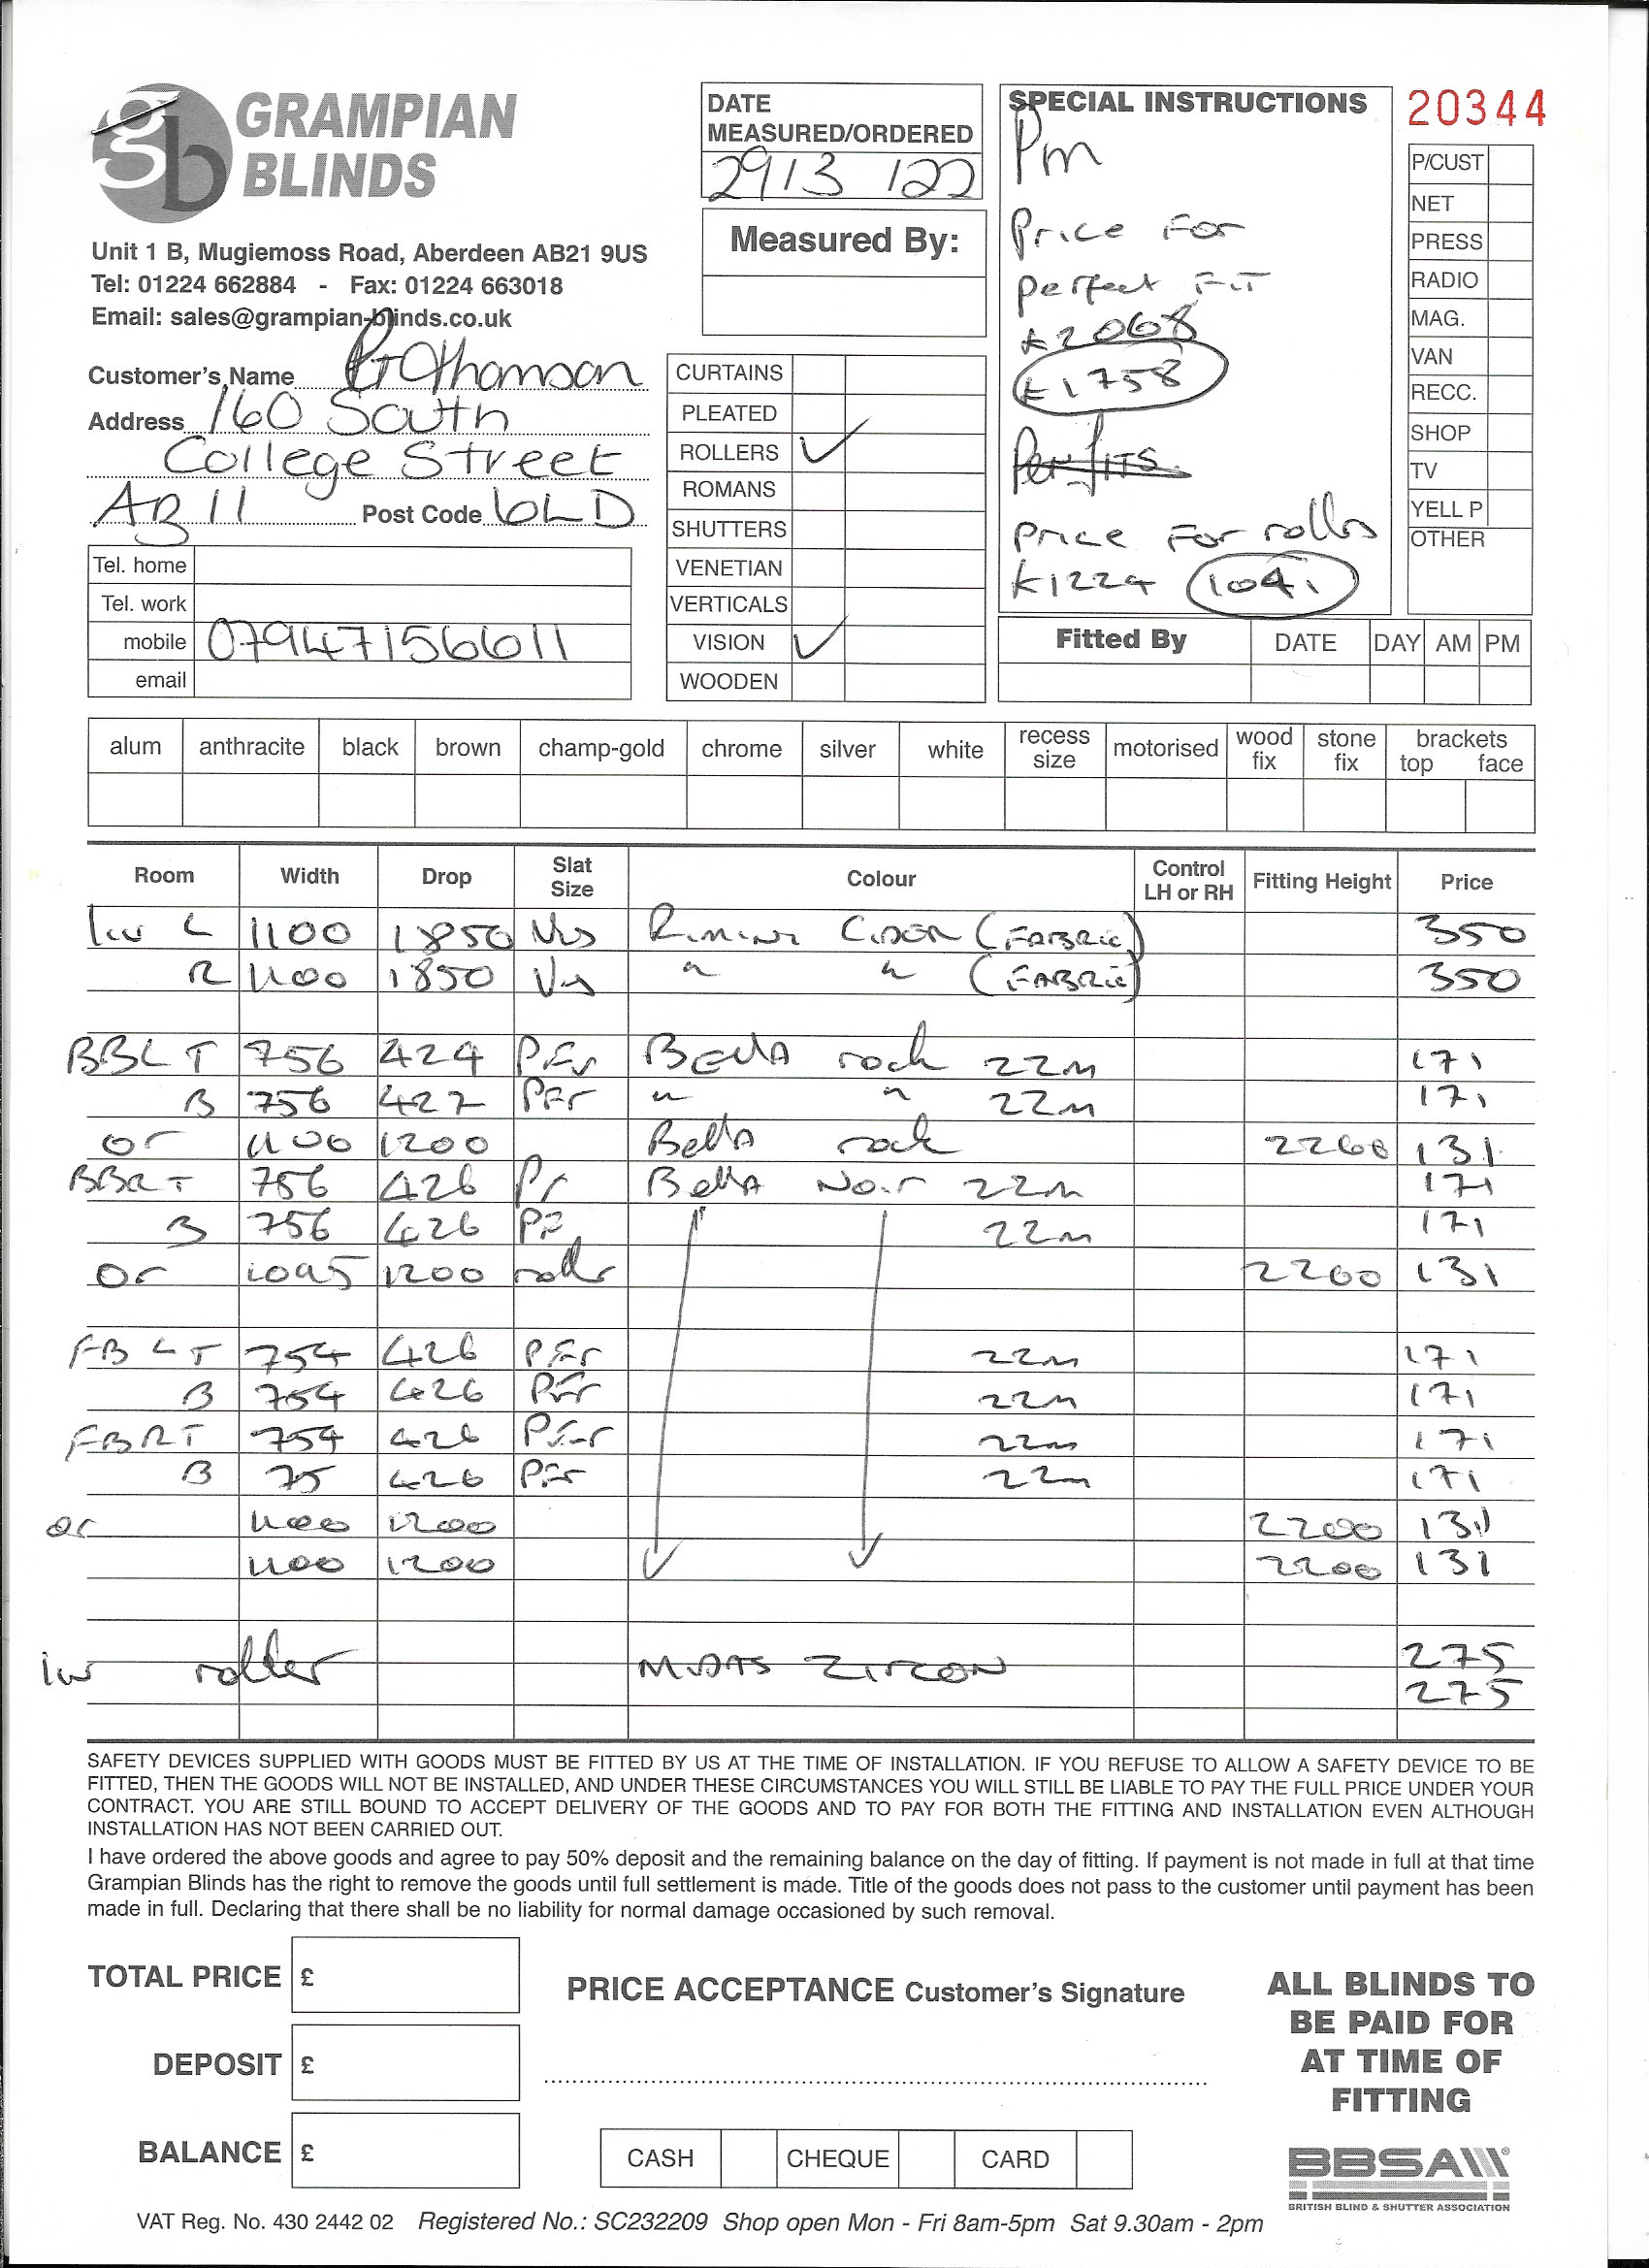 GRAMPIAN
BLINDS
Unit 1 B, Mugiemoss Road, Aberdeen AB21 9US
Tel: 01224 662884 - Fax: 01224 663018
Email: sales@grampian-blinds.co.uk
Customer's Name Thomson
Address 160 South
College Street
AB11 Post Code 6LD
Tel. home
Tel. work
mobile 07947156611
email
DATE
MEASURED/ORDERED
29/3/22
Measured By:
CURTAINS
PLEATED
ROLLERS ✓
ROMANS
SHUTTERS
VENETIAN
VERTICALS
VISION ✓
WOODEN
SPECIAL INSTRUCTIONS
Pm
Price For
perfect FiT
£2068
£1758
Perfits
Price For rolls
£1224 1041
20344
P/CUST
NET
PRESS
RADIO
MAG.
VAN
RECC.
SHOP
TV
YELL P
OTHER
Fitted By DATE DAY AM PM
alum anthracite black brown champ-gold chrome silver white recess size motorised wood fix stone fix brackets top face
Room Width Drop Slat Size Colour Control LH or RH Fitting Height Price
L 1100 1850 Vis Rimini (FABRIC) 350
R 1100 1850 Vis " " (FABRIC) 350
BBLT 756 424 PFr Bella rock 22m 171
B 756 427 PFr " " 22m 171
or 1100 1200 Bella rock 2260 131
BBRT 756 426 PF Bella Noir 22m 171
B 756 426 PF 22m 171
or 1095 1200 roller 2200 131
FBLT 754 426 PFr 22m 171
B 754 426 PFr 22m 171
FBRT 754 426 PFr 22m 171
B 75 426 PFr 22m 171
or 1100 1200 2200 131
1100 1200 2200 131
roller MIDAS ZIRCON 275
275
SAFETY DEVICES SUPPLIED WITH GOODS MUST BE FITTED BY US AT THE TIME OF INSTALLATION. IF YOU REFUSE TO ALLOW A SAFETY DEVICE TO BE
FITTED, THEN THE GOODS WILL NOT BE INSTALLED, AND UNDER THESE CIRCUMSTANCES YOU WILL STILL BE LIABLE TO PAY THE FULL PRICE UNDER YOUR
CONTRACT. YOU ARE STILL BOUND TO ACCEPT DELIVERY OF THE GOODS AND TO PAY FOR BOTH THE FITTING AND INSTALLATION EVEN ALTHOUGH
INSTALLATION HAS NOT BEEN CARRIED OUT.
I have ordered the above goods and agree to pay 50% deposit and the remaining balance on the day of fitting. If payment is not made in full at that time
Grampian Blinds has the right to remove the goods until full settlement is made. Title of the goods does not pass to the customer until payment has been
made in full. Declaring that there shall be no liability for normal damage occasioned by such removal.
TOTAL PRICE £
DEPOSIT £
BALANCE £
PRICE ACCEPTANCE Customer's Signature
CASH CHEQUE CARD
ALL BLINDS TO
BE PAID FOR
AT TIME OF
FITTING
BBSA
BRITISH BLIND & SHUTTER ASSOCIATION
VAT Reg. No. 430 2442 02 Registered No.: SC232209 Shop open Mon - Fri 8am-5pm Sat 9.30am - 2pm